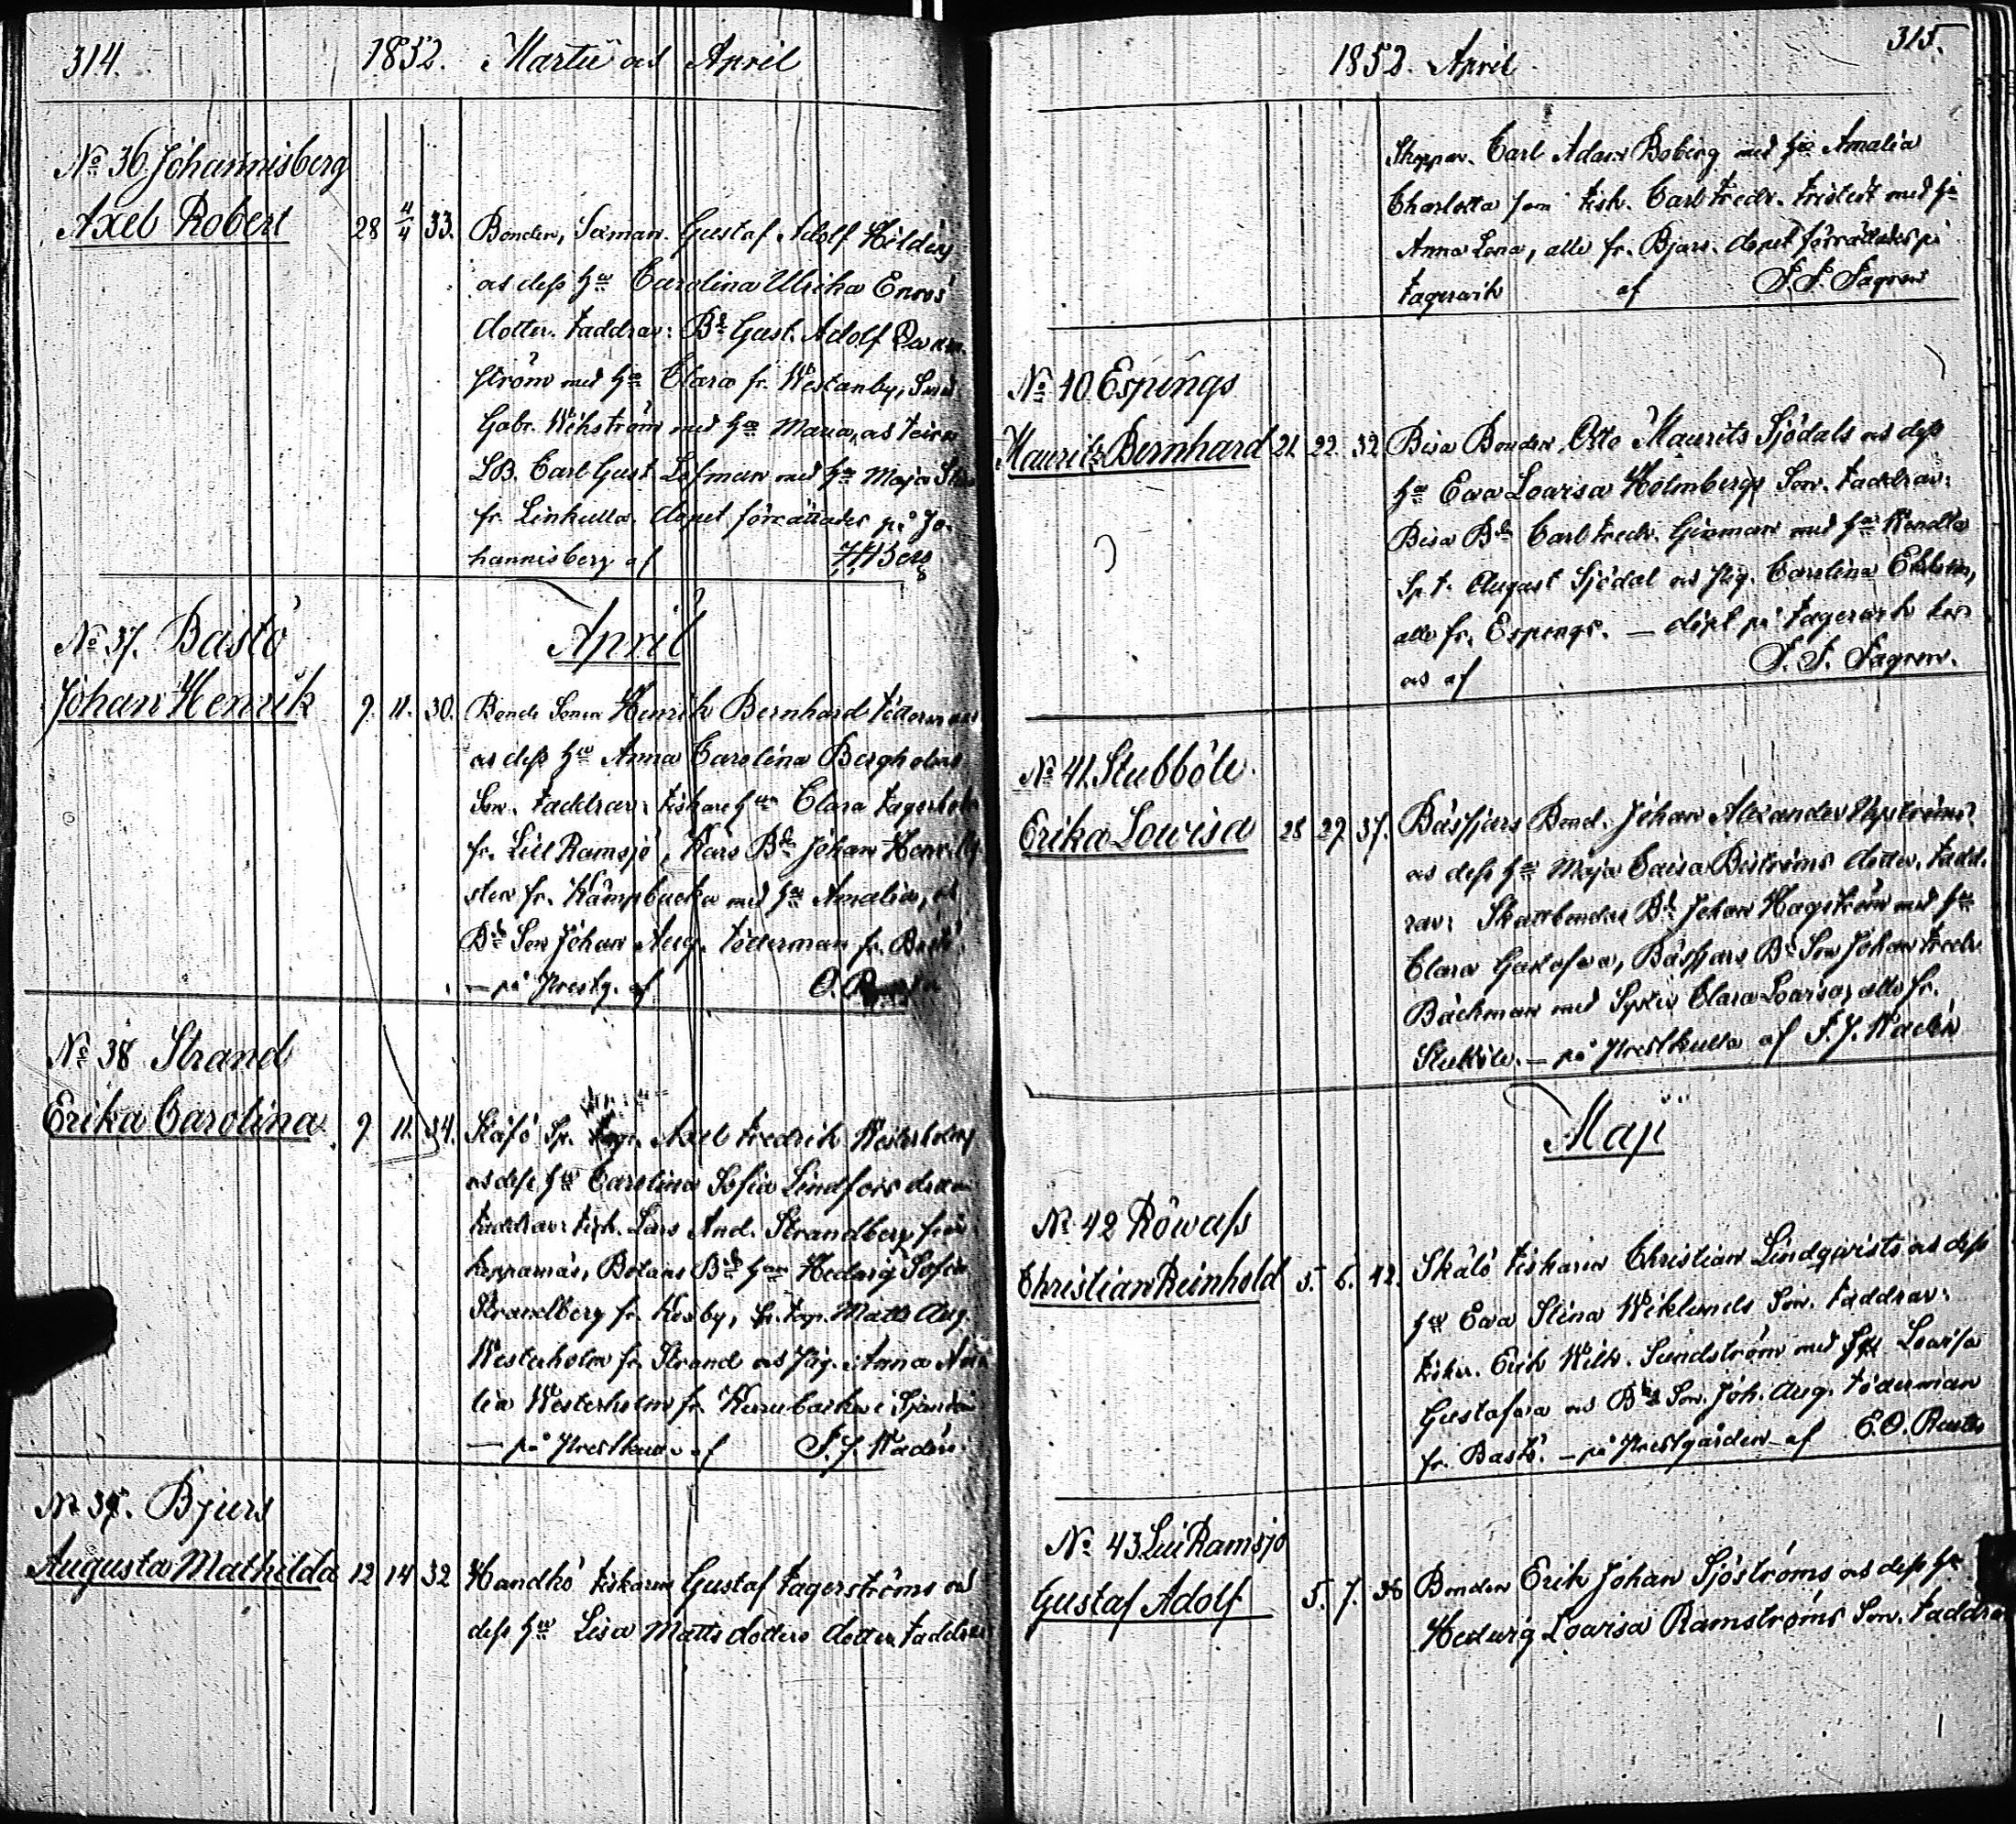 314. 1852. Martii och April
No 36 Johannisberg
Axel Robert 28 4/4 33. Bonden, Sexman. Gustaf Adolf Hildén
och dess hu Carolina Ulrika Enros
dotter. Faddrar: Bd Gust. Adolf
ström med hu Clara fr. Westanby, Smed
Gabr. Wikström med hu Maria, och
LB. Carl Gust. Löfman med hu Maja
fr. Linkulla. dopet förrättades på Jo-
hannisberg af
April
No 37. Bastö
Johan Henrik 9. 11. 30. Bonde Sonen Henrik Bernhard Töderman
och dess hu Anna Carolina Bergholms
Son. Faddrar: Fiskare hu Clara Fagerholm
fr. Lill Ramsjö, Kers Bd Johan Henr.
sten fr. Kämpbacka med hu Amalia, och
Bde Son Johan Aug. Töderman fr. Bastö.
— på Prestg. af O.
No 38 Strand
Erika Carolina 9. 11. 34. Skåfö Axel Fredrik Westerholms
och dess hu Carolina Sofia Lindfors dotter
Faddrar: Fisk. Lars And. Strandberg från
Kopparnäs, Bölars Bde hu Hedvig Sofia
Strandberg fr. Kosby, Matts Aug.
Westerholm fr. Strand och Pig. Anna
lia Westerholm fr. i Sjundeå
— på Prestkulla af F. J. Wadén
No 39. Bjurs
Augusta Mathilda 12 14 32 Handkö Fiskaren Gustaf Fagerströms och
dess hu Lisa Matts dotters dotter. Faddrar
1852. April 315.
Skeppar. Carl Adam Boberg med hu Amalia
Charlotta som Fisk. Carl Fredr. Fristedt med hu
Anna Lena, alle fr. Bjurs. dopet förrättades på
Fagervik af F. F. Fagren
No 40 Espings
Mauritz Bernhard 21. 22. 32. Bisa Bonden, Otto Maurits Sjödals och dess
hu Eva Lovisa Holmbergs Son. Faddrar:
Bisa Bde Carl Fredr. Ginman med hu Wendla
Sp. T. August Sjödal och Pig. Carolina Ekblom,
alle fr. Espings. — döpt på Fagervik
och af F. F. Fagren.
No 41. Stubböle.
Erika Lowisa 28 29. 37. Båssjars Bond. Johan Alexander Nyströms
och dess hu Maja Caisa Biströms dotter. Fadd.
rar: Skattbonden Bd Johan Hagström med hu
Clara Gustafva, Båssjars Bd Son Johan Fredr.
Bäckman med Syster Clara Lovisa, alle fr.
Stubböle. — på Prestkulla af F. J. Wadén
Maji
No 42 Röwass
Christian Reinhold 5. 6. 42. Skålö Fiskaren Christian Lindqvists och dess
hu Eva Stina Wiklunds Son. Faddrar:
Fiskr. Erik Wilh. Sundström med hu Lovisa
Gustafava och Bde Son. Joh. Aug. Töderman
fr. Bastö. — på Prestgården af E. O.
No 43. Lill Ramsjö
Gustaf Adolf 5. 7. 36 Bonden Erik Johan Sjöströms och dess hu
Hedwig Lovisa Ramströms Son. Faddrar